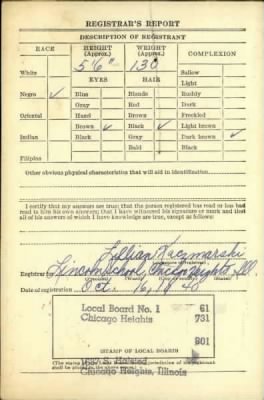 REGISTRAR'S REPORT
DESCRIPTION OF REGISTRANT
RACE HEIGHT (Approx.) WEIGHT (Approx.) COMPLEXION
5'6" 130
White Sallow
EYES HAIR Light
Negro ✓ Blue Blonde Ruddy
Gray Red Dark
Oriental Hazel Brown Freckled
Brown ✓ Black ✓ Light brown
Indian Black Gray Dark brown ✓
Bald Black
Filipino
Other obvious physical characteristics that will aid in identification
I certify that my answers are true; that the person registered has read or has had
read to him his own answers; that I have witnessed his signature or mark and that
all of his answers of which I have knowledge are true, except as follows:
Lillian Kaczmarski
Registrar for Lincoln School, Chicago Heights, Ill.
Date of registration Oct. 16, 1940
Local Board No. 1 61
Chicago Heights 731
801
STAMP OF LOCAL BOARD
1637 S. Halsted
Chicago Heights, Illinois